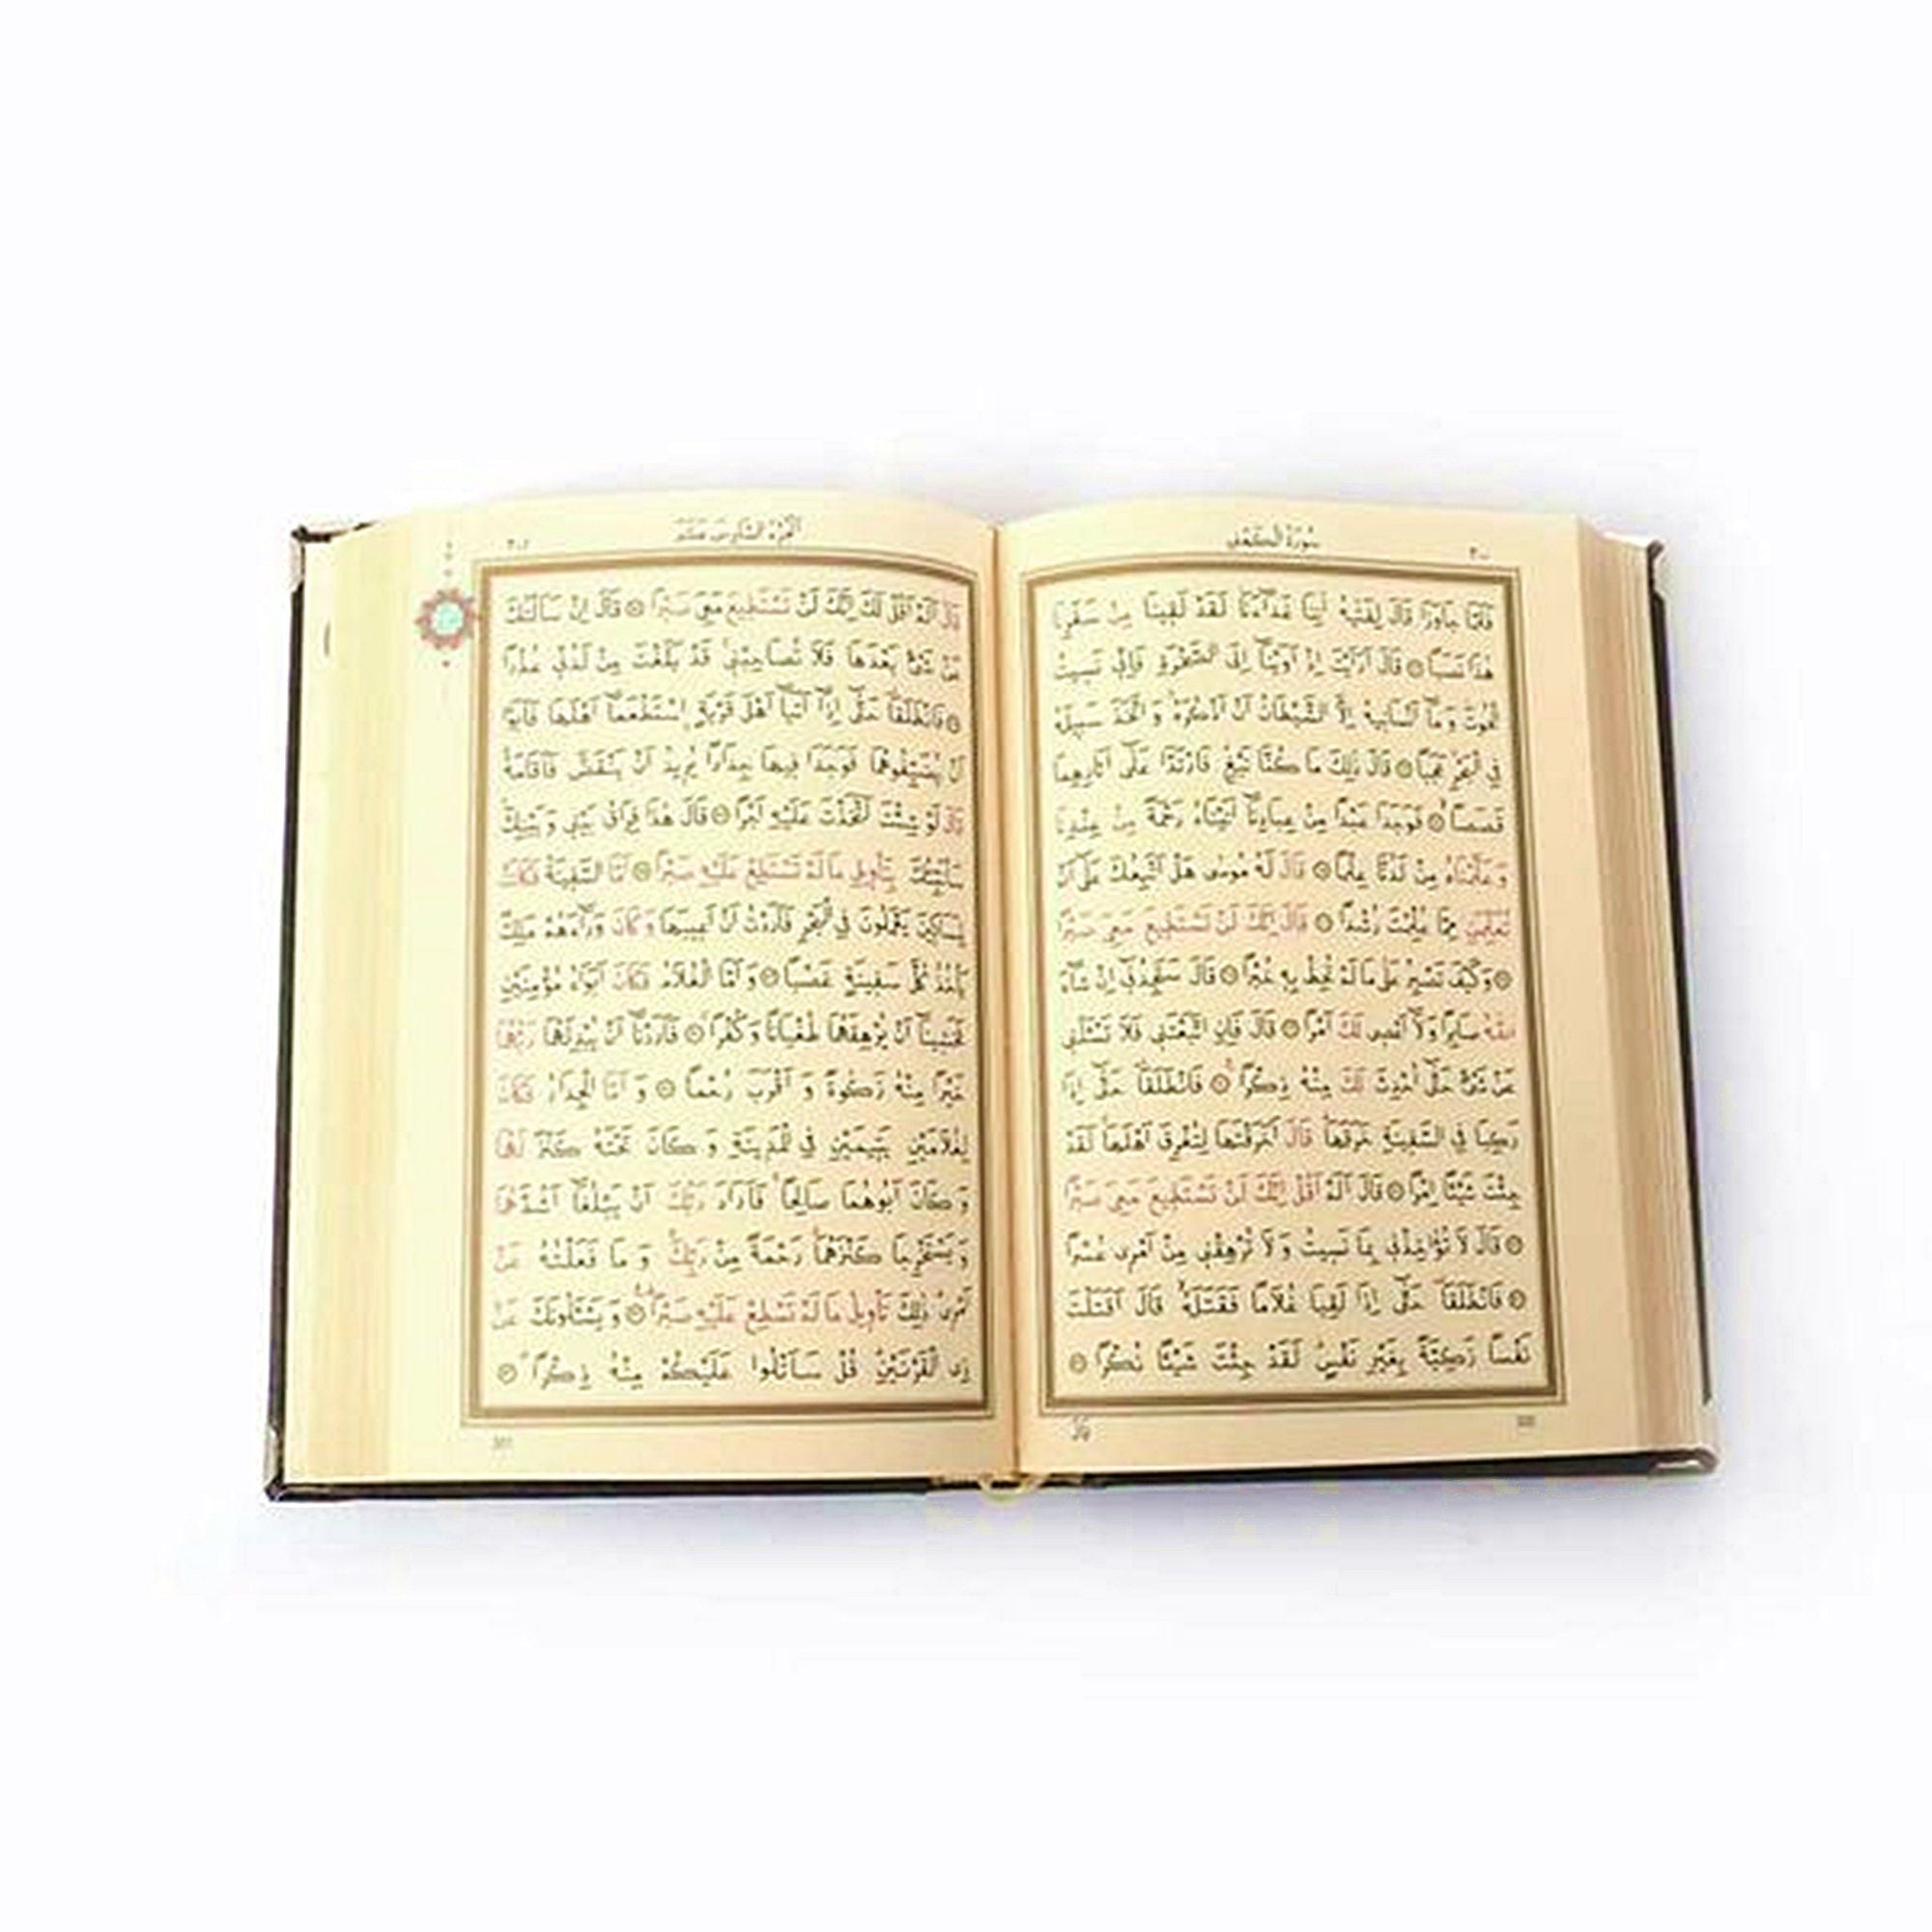 ٣٠٠
سُورَةُ الْكَهْفِ
فَلَمَّا جَاوَزَا قَالَ لِفَتٰيهُ اٰتِنَا غَدَٓاءَنَا لَقَدْ لَقٖينَا مِنْ سَفَرِنَا
هٰذَا نَصَبًا ۝ قَالَ اَرَاَيْتَ اِذْ اَوَيْنَٓا اِلَى الصَّخْرَةِ فَاِنّٖى نَسٖيتُ
الْحُوتَ وَمَٓا اَنْسَانٖيهُ اِلَّا الشَّيْطَانُ اَنْ اَذْكُرَهُ وَاتَّخَذَ سَبٖيلَهُ
فِى الْبَحْرِ عَجَبًا ۝ قَالَ ذٰلِكَ مَا كُنَّا نَبْغِ فَارْتَدَّا عَلٰٓى اٰثَارِهِمَا
قَصَصًا ۝ فَوَجَدَا عَبْدًا مِنْ عِبَادِنَٓا اٰتَيْنَاهُ رَحْمَةً مِنْ عِنْدِنَا
وَعَلَّمْنَاهُ مِنْ لَدُنَّا عِلْمًا ۝ قَالَ لَهُ مُوسٰى هَلْ اَتَّبِعُكَ عَلٰٓى اَنْ
تُعَلِّمَنِ مِمَّا عُلِّمْتَ رُشْدًا ۝ قَالَ اِنَّكَ لَنْ تَسْتَطٖيعَ مَعِىَ صَبْرًا
۝ وَكَيْفَ تَصْبِرُ عَلٰى مَا لَمْ تُحِطْ بِهٖ خُبْرًا ۝ قَالَ سَتَجِدُنٖٓى اِنْ شَٓاءَ
اللّٰهُ صَابِرًا وَلَٓا اَعْصٖى لَكَ اَمْرًا ۝ قَالَ فَاِنِ اتَّبَعْتَنٖى فَلَا تَسْئَلْنٖى
عَنْ شَىْءٍ حَتّٰٓى اُحْدِثَ لَكَ مِنْهُ ذِكْرًا ۝ فَانْطَلَقَا حَتّٰٓى اِذَا
رَكِبَا فِى السَّفٖينَةِ خَرَقَهَا قَالَ اَخَرَقْتَهَا لِتُغْرِقَ اَهْلَهَا لَقَدْ
جِئْتَ شَيْئًا اِمْرًا ۝ قَالَ اَلَمْ اَقُلْ اِنَّكَ لَنْ تَسْتَطٖيعَ مَعِىَ صَبْرًا
۝ قَالَ لَا تُؤَاخِذْنٖى بِمَا نَسٖيتُ وَلَا تُرْهِقْنٖى مِنْ اَمْرٖى عُسْرًا
۝ فَانْطَلَقَا حَتّٰٓى اِذَا لَقِيَا غُلَامًا فَقَتَلَهُ قَالَ اَقَتَلْتَ
نَفْسًا زَكِيَّةً بِغَيْرِ نَفْسٍ لَقَدْ جِئْتَ شَيْئًا نُكْرًا ۝
قَالَ
300
الْجُزْءُ السَّادِسَ عَشَرَ
٣٠١
قَالَ اَلَمْ اَقُلْ لَكَ اِنَّكَ لَنْ تَسْتَطٖيعَ مَعِىَ صَبْرًا ۝ قَالَ اِنْ سَاَلْتُكَ
عَنْ شَىْءٍ بَعْدَهَا فَلَا تُصَاحِبْنٖى قَدْ بَلَغْتَ مِنْ لَدُنّٖى عُذْرًا
۝ فَانْطَلَقَا حَتّٰٓى اِذَٓا اَتَيَٓا اَهْلَ قَرْيَةٍ اِسْتَطْعَمَٓا اَهْلَهَا فَاَبَوْا
اَنْ يُضَيِّفُوهُمَا فَوَجَدَا فٖيهَا جِدَارًا يُرٖيدُ اَنْ يَنْقَضَّ فَاَقَامَهُ
قَالَ لَوْ شِئْتَ لَتَّخَذْتَ عَلَيْهِ اَجْرًا ۝ قَالَ هٰذَا فِرَاقُ بَيْنٖى وَبَيْنِكَ
سَاُنَبِّئُكَ بِتَأْوٖيلِ مَا لَمْ تَسْتَطِعْ عَلَيْهِ صَبْرًا ۝ اَمَّا السَّفٖينَةُ فَكَانَتْ
لِمَسَاكٖينَ يَعْمَلُونَ فِى الْبَحْرِ فَاَرَدْتُ اَنْ اَعٖيبَهَا وَكَانَ وَرَٓاءَهُمْ مَلِكٌ
يَأْخُذُ كُلَّ سَفٖينَةٍ غَصْبًا ۝ وَاَمَّا الْغُلَامُ فَكَانَ اَبَوَاهُ مُؤْمِنَيْنِ
فَخَشٖينَٓا اَنْ يُرْهِقَهُمَا طُغْيَانًا وَكُفْرًا ۝ فَاَرَدْنَٓا اَنْ يُبْدِلَهُمَا رَبُّهُمَا
خَيْرًا مِنْهُ زَكٰوةً وَاَقْرَبَ رُحْمًا ۝ وَاَمَّا الْجِدَارُ فَكَانَ
لِغُلَامَيْنِ يَتٖيمَيْنِ فِى الْمَدٖينَةِ وَكَانَ تَحْتَهُ كَنْزٌ لَهُمَا
وَكَانَ اَبُوهُمَا صَالِحًا فَاَرَادَ رَبُّكَ اَنْ يَبْلُغَٓا اَشُدَّهُمَا
وَيَسْتَخْرِجَا كَنْزَهُمَا رَحْمَةً مِنْ رَبِّكَ وَمَا فَعَلْتُهُ عَنْ
اَمْرٖى ذٰلِكَ تَأْوٖيلُ مَا لَمْ تَسْطِعْ عَلَيْهِ صَبْرًا ۝ وَيَسْئَلُونَكَ عَنْ
ذِى الْقَرْنَيْنِ قُلْ سَاَتْلُوا عَلَيْكُمْ مِنْهُ ذِكْرًا ۝
301